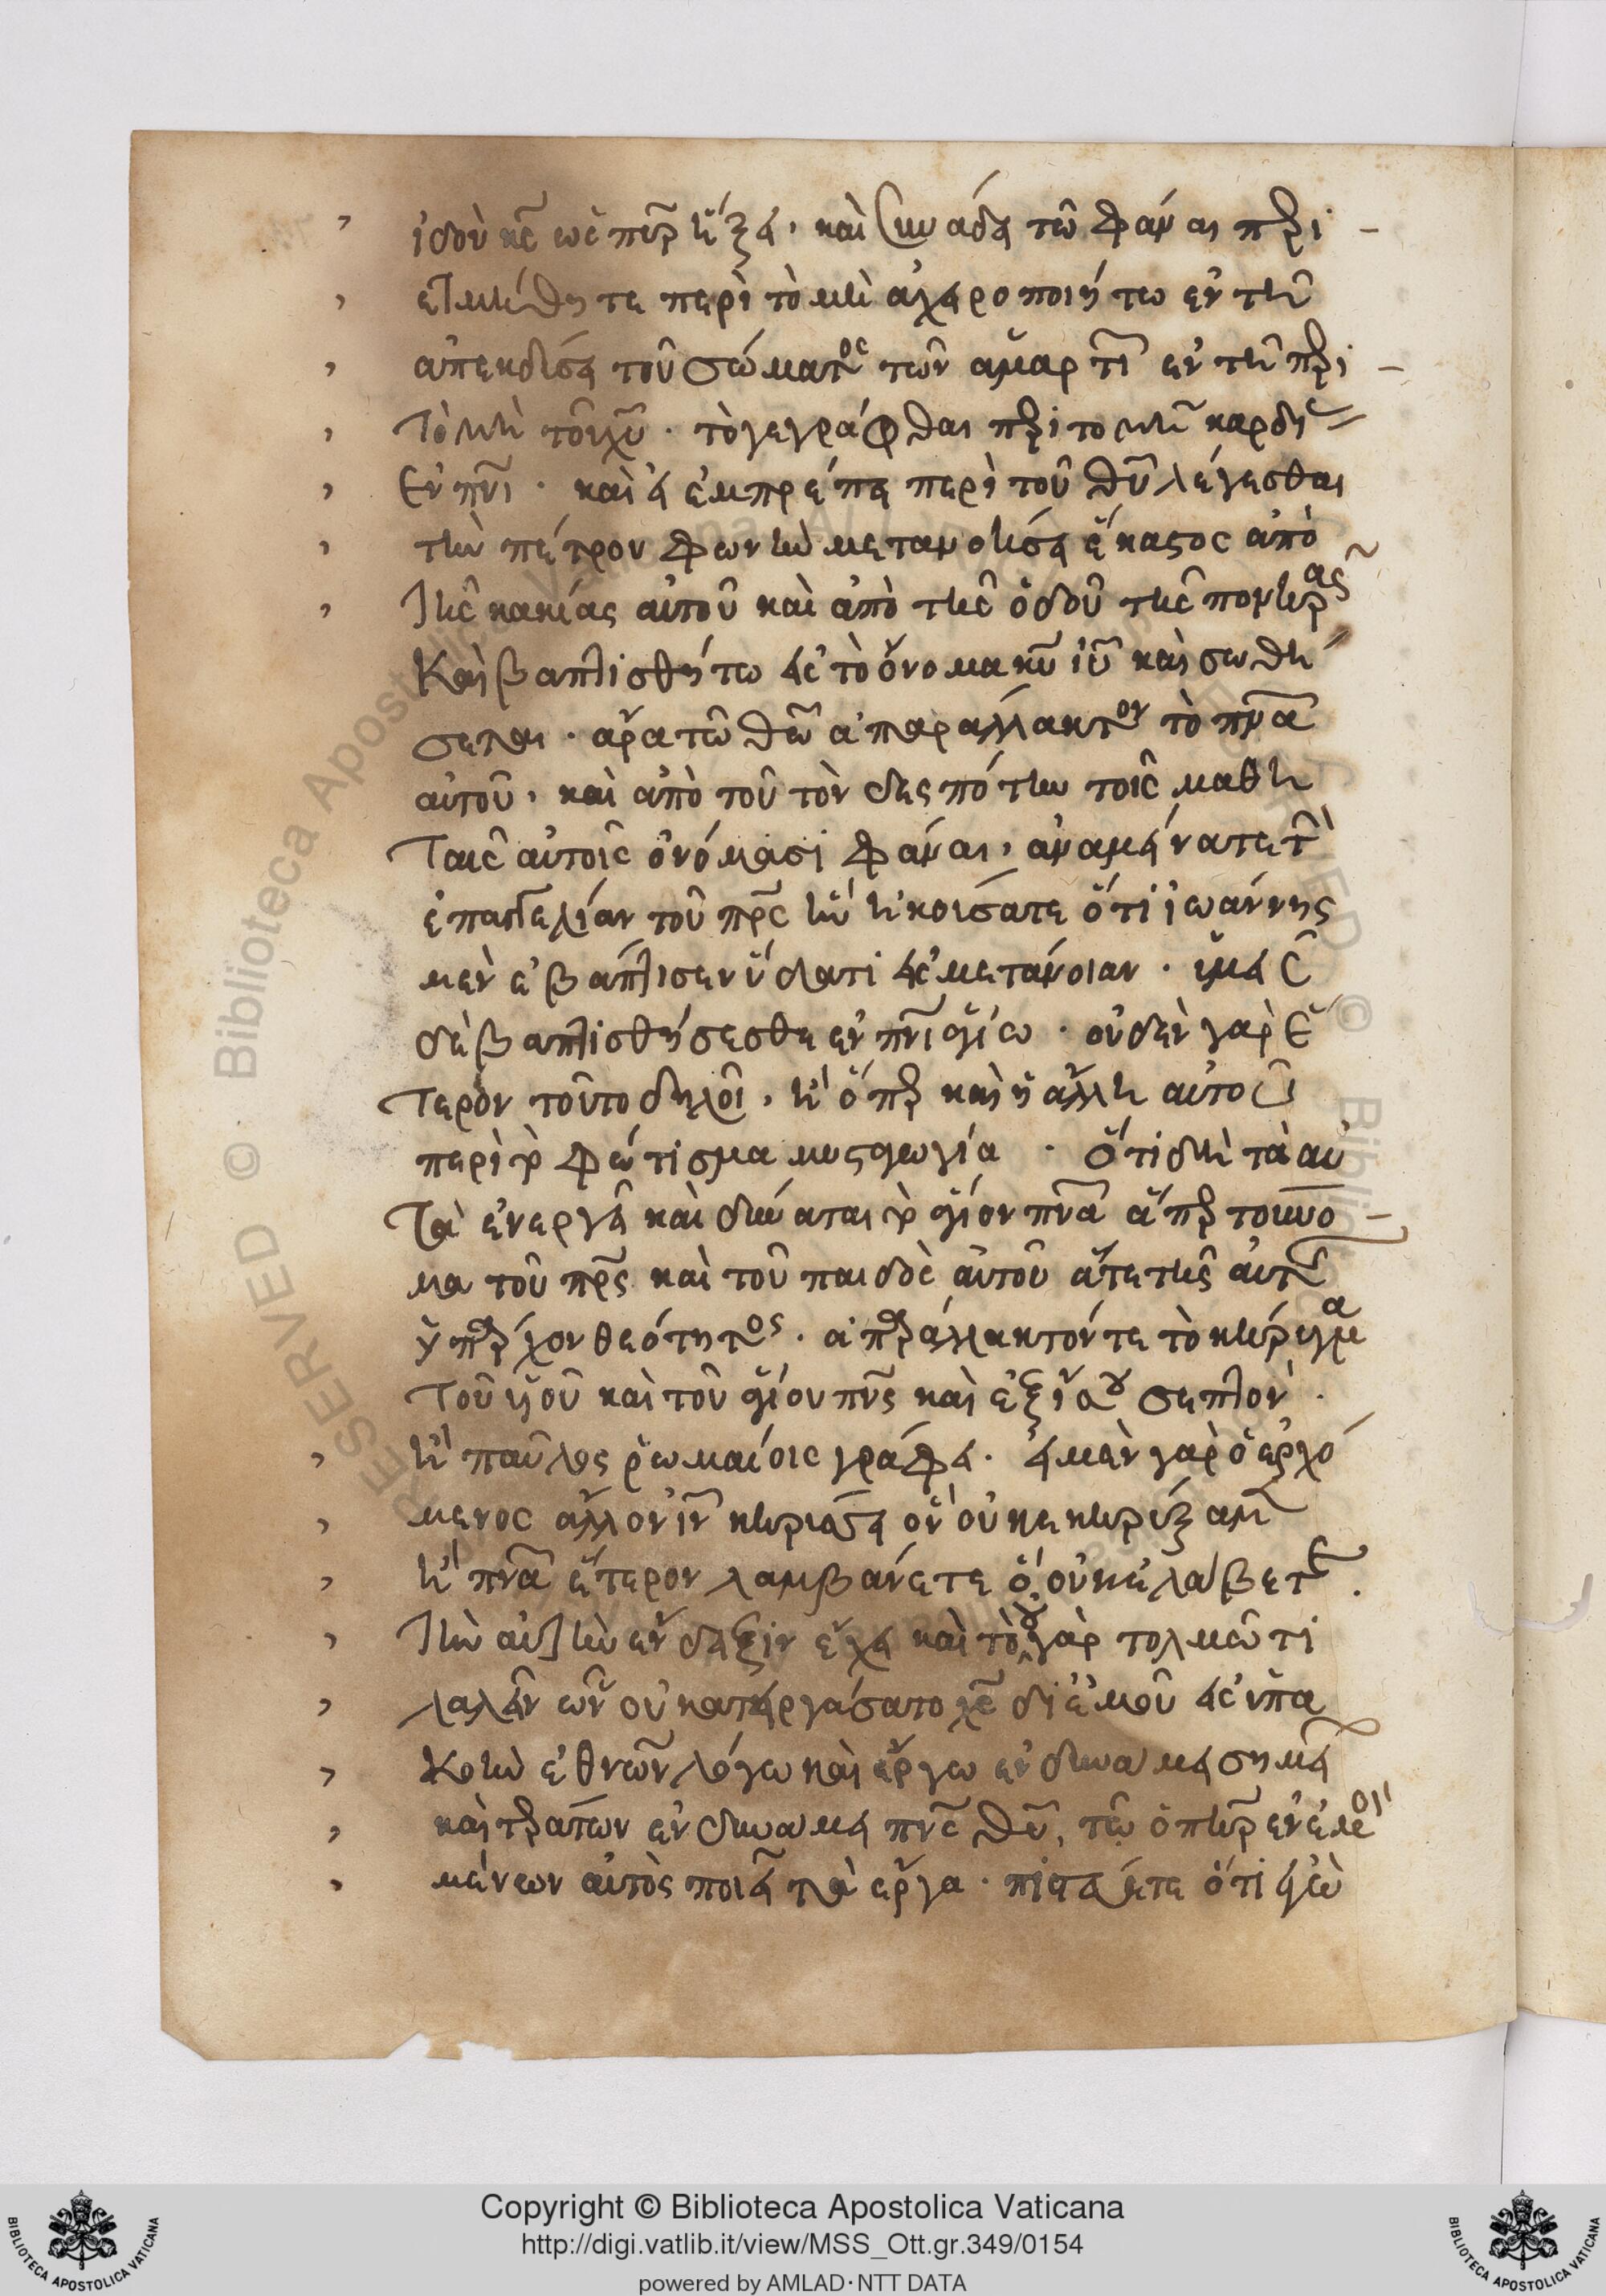 ἰδοὺ κς ὡς πῦρ ἥξει, καὶ συνάδει τῶ φάναι περι
ετμήθητε περιτομῆ ἀχειροποιήτω ἐν τῆ
ἀπεκδύσει τοῦ σώματος τῶν ἁμαρτι ἐν τῆ περι
τομῆ τοῦ χυ · τὸ γεγράφθαι περιτομὴ καρδί
ἐν πνι · καὶ ἐμπρέπει περὶ τοῦ θυ λέγεσθαι
τὴν πέτρου φωνὴν μετανοήσει ἕκαστος ἀπὸ
τῆς κακίας αὐτοῦ καὶ ἀπὸ τῆς ὁδοῦ τῆς πονηρας
καὶ βαπτισθήτω εἰς τὸ ὄνομα κυ ιυ καὶ σωθή
σεται · ἄρα τῶ θῶ ἀπαράλλακτον τὸ πνα
αὐτοῦ, καὶ ἀπὸ τοῦ τὸν δεσπότην τοῖς μαθη
ταῖς αὐτοῖς ὀνόμασι φάναι, ἀναμείνατε τ
ἐπαγγελίαν τοῦ πρς ἣν ἠκούσατε ὅτι ἰωάννης
μὲν ἐβάπτισεν ὕδατι εἰς μετάνοιαν · ὑμεῖς
δὲ βαπτισθήσεσθε ἐν πνι ἁγίω · οὐδὲν γὰρ ἕ
τερον τοῦτο δηλοῖ, ἢ ὅπερ καὶ ἡ ἄλλη αὐτοῦ
περὶ τὸ φώτισμα μυσταγωγία · ὅτι δὴ τὰ αὐ
τὰ ἐνεργεῖ καὶ δύναται τὸ ἅγιον πνα ἅπερ τοὔνο
μα τοῦ πρς καὶ τοῦ παιδὸς αὐτοῦ ἅτε τῆς αὐτ
ὑπάρχον θεότητος · ἀπαράλλακτόν τε τὸ κήρυγμα
τοῦ υἱοῦ καὶ τοῦ ἁγίου πνς καὶ ἐξίσου σεπτόν ·
ἢ παῦλος ῥωμαίοις γράφει · εἰ μὲν γὰρ ὁ ἐρχό
μενος ἄλλον ιν κηρύσσει ὃν οὐκ ἐκηρύξαμ
ἢ πνα ἕτερον λαμβάνετε ὃ οὐκ ἐλάβετε ·
τὴν αὐτὴν ἔνδειξιν ἔχει καὶ τὸ οὐ γὰρ τολμῶ τι
λαλεῖν ὧν οὐ κατειργάσατο χς δι ἐμοῦ εἰς ὑπα
κοὴν ἐθνῶν λόγω καὶ ἔργω ἐν δυνάμει σημεί
καὶ τεράτων ἐν δυνάμει πνς θυ, τῶ ὁ πηρ ἐν ἐμοὶ
μένων αὐτὸς ποιεῖ τὰ ἔργα · πιστεύετε ὅτι ἐγὼ
Copyright © Biblioteca Apostolica Vaticana
http://digi.vatlib.it/view/MSS_Ott.gr.349/0154
powered by AMLAD·NTT DATA